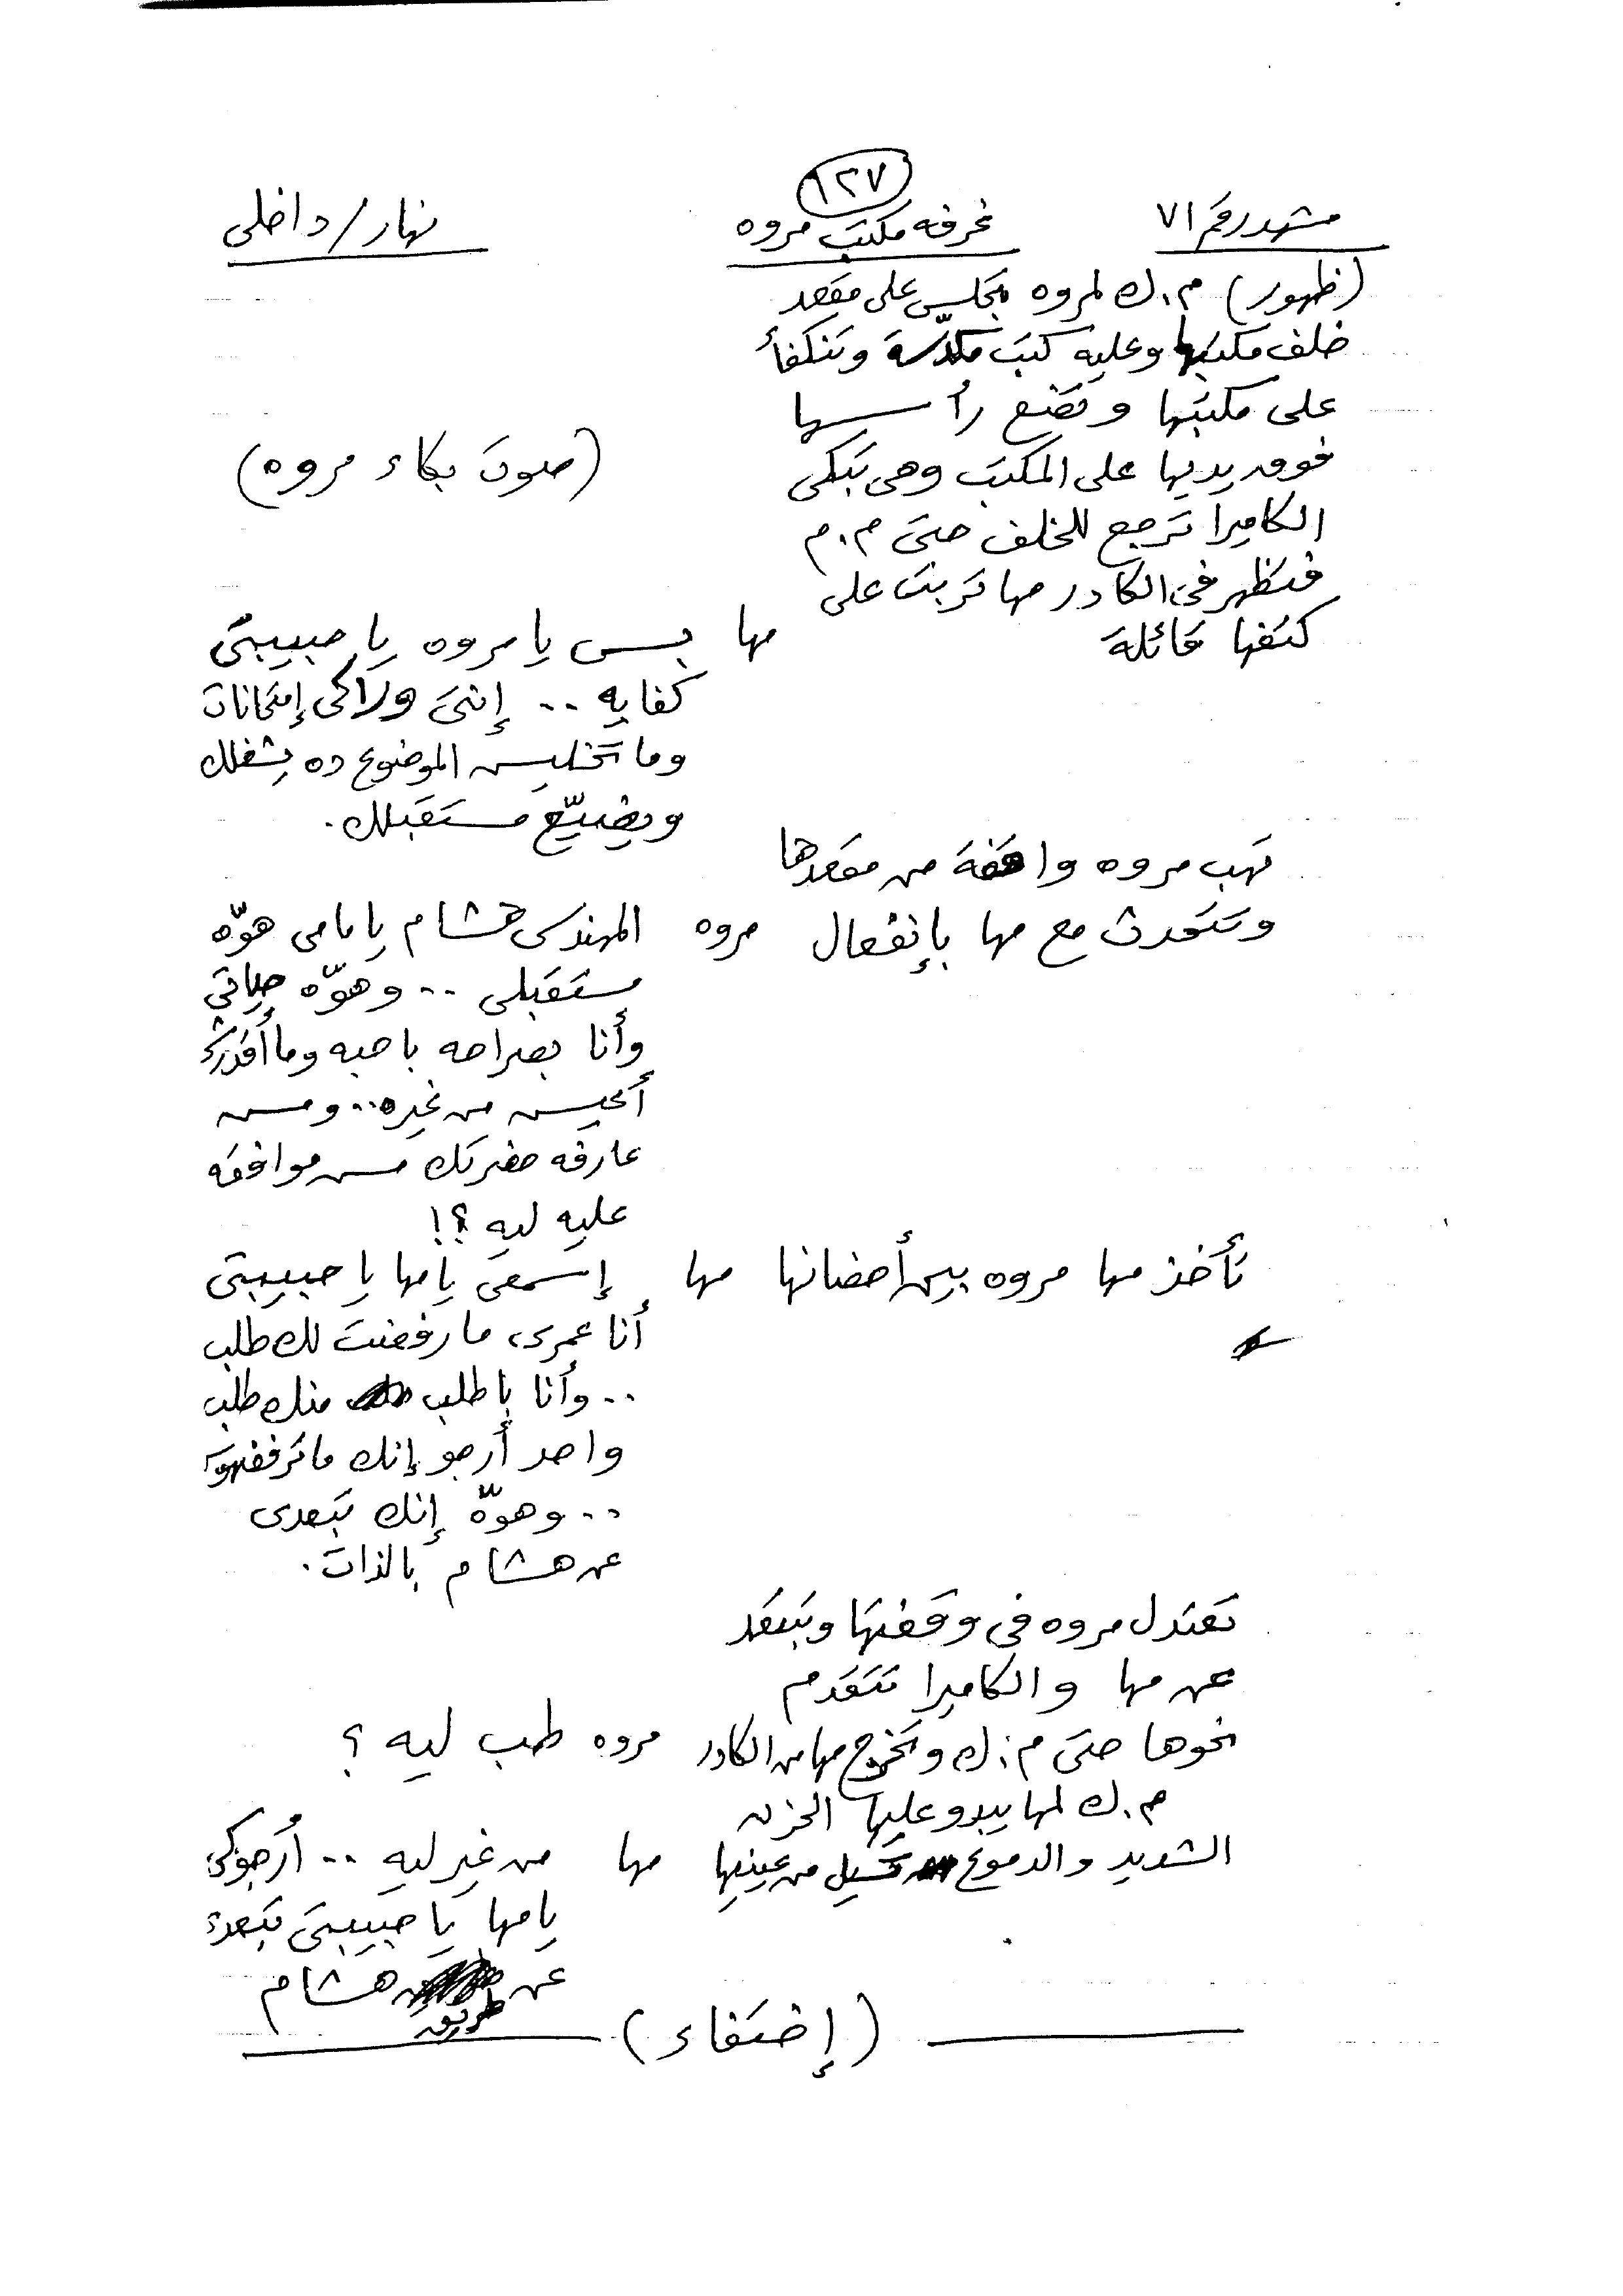 ١٢٧
مشهد رقم ٧١ غرفه مكتب مروه نهار/داخلى
(ظهور) م.ك لمروه تجلس على مقعد
خلف مكتبها وعليه كتب مكدّسة وتنكفأ
على مكتبها وتضع رأسها
فوق يديها على المكتب وهى تبكى (صوت بكاء مروه)
الكاميرا ترجع للخلف حتى م.م
فتظهر فى الكادر مها تربت على
كتفها قائلة مها بس يا مروه يا حبيبتى
كفايه .. إنتى وراكى إمتحانات
وما تخليش الموضوع ده يشغلك
ويضيّع مستقبلك.
تهب مروه واقفة من مقعدها
وتتحدث مع مها بإنفعال مروه المهندس هشام يا مامى هوّه
مستقبلى .. وهوّه حياتى
وأنا بصراحه باحبه وما أقدرش
أعيش من غيره .. ومش
عارفه حضرتك مش موافقه
عليه ليه ؟!
تأخذ مها مروه بين أحضانها مها إسمعى يا مها يا حبيبتى
أنا عمرى ما رفضت لك طلب
.. وأنا باطلب منك طلب
واحد أرجو إنك ما ترفضهوش
.. وهوّه إنك تبعدى
عن هشام بالذات.
تعتدل مروه فى وقفتها وتبتعد
عن مها والكاميرا تتقدم
نحوها حتى م.ك وتخرج مها من الكادر مروه طب ليه ؟
م.ك لمها يبدو عليها الحزن
الشديد والدموع تسيل من عينيها مها من غير ليه .. أرجوكى
يا مها يا حبيبتى تبعدى
عن طريق هشام
(إختفاء)